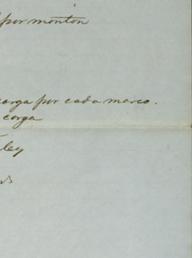 por monton
carga por cada marco.
carga
ley